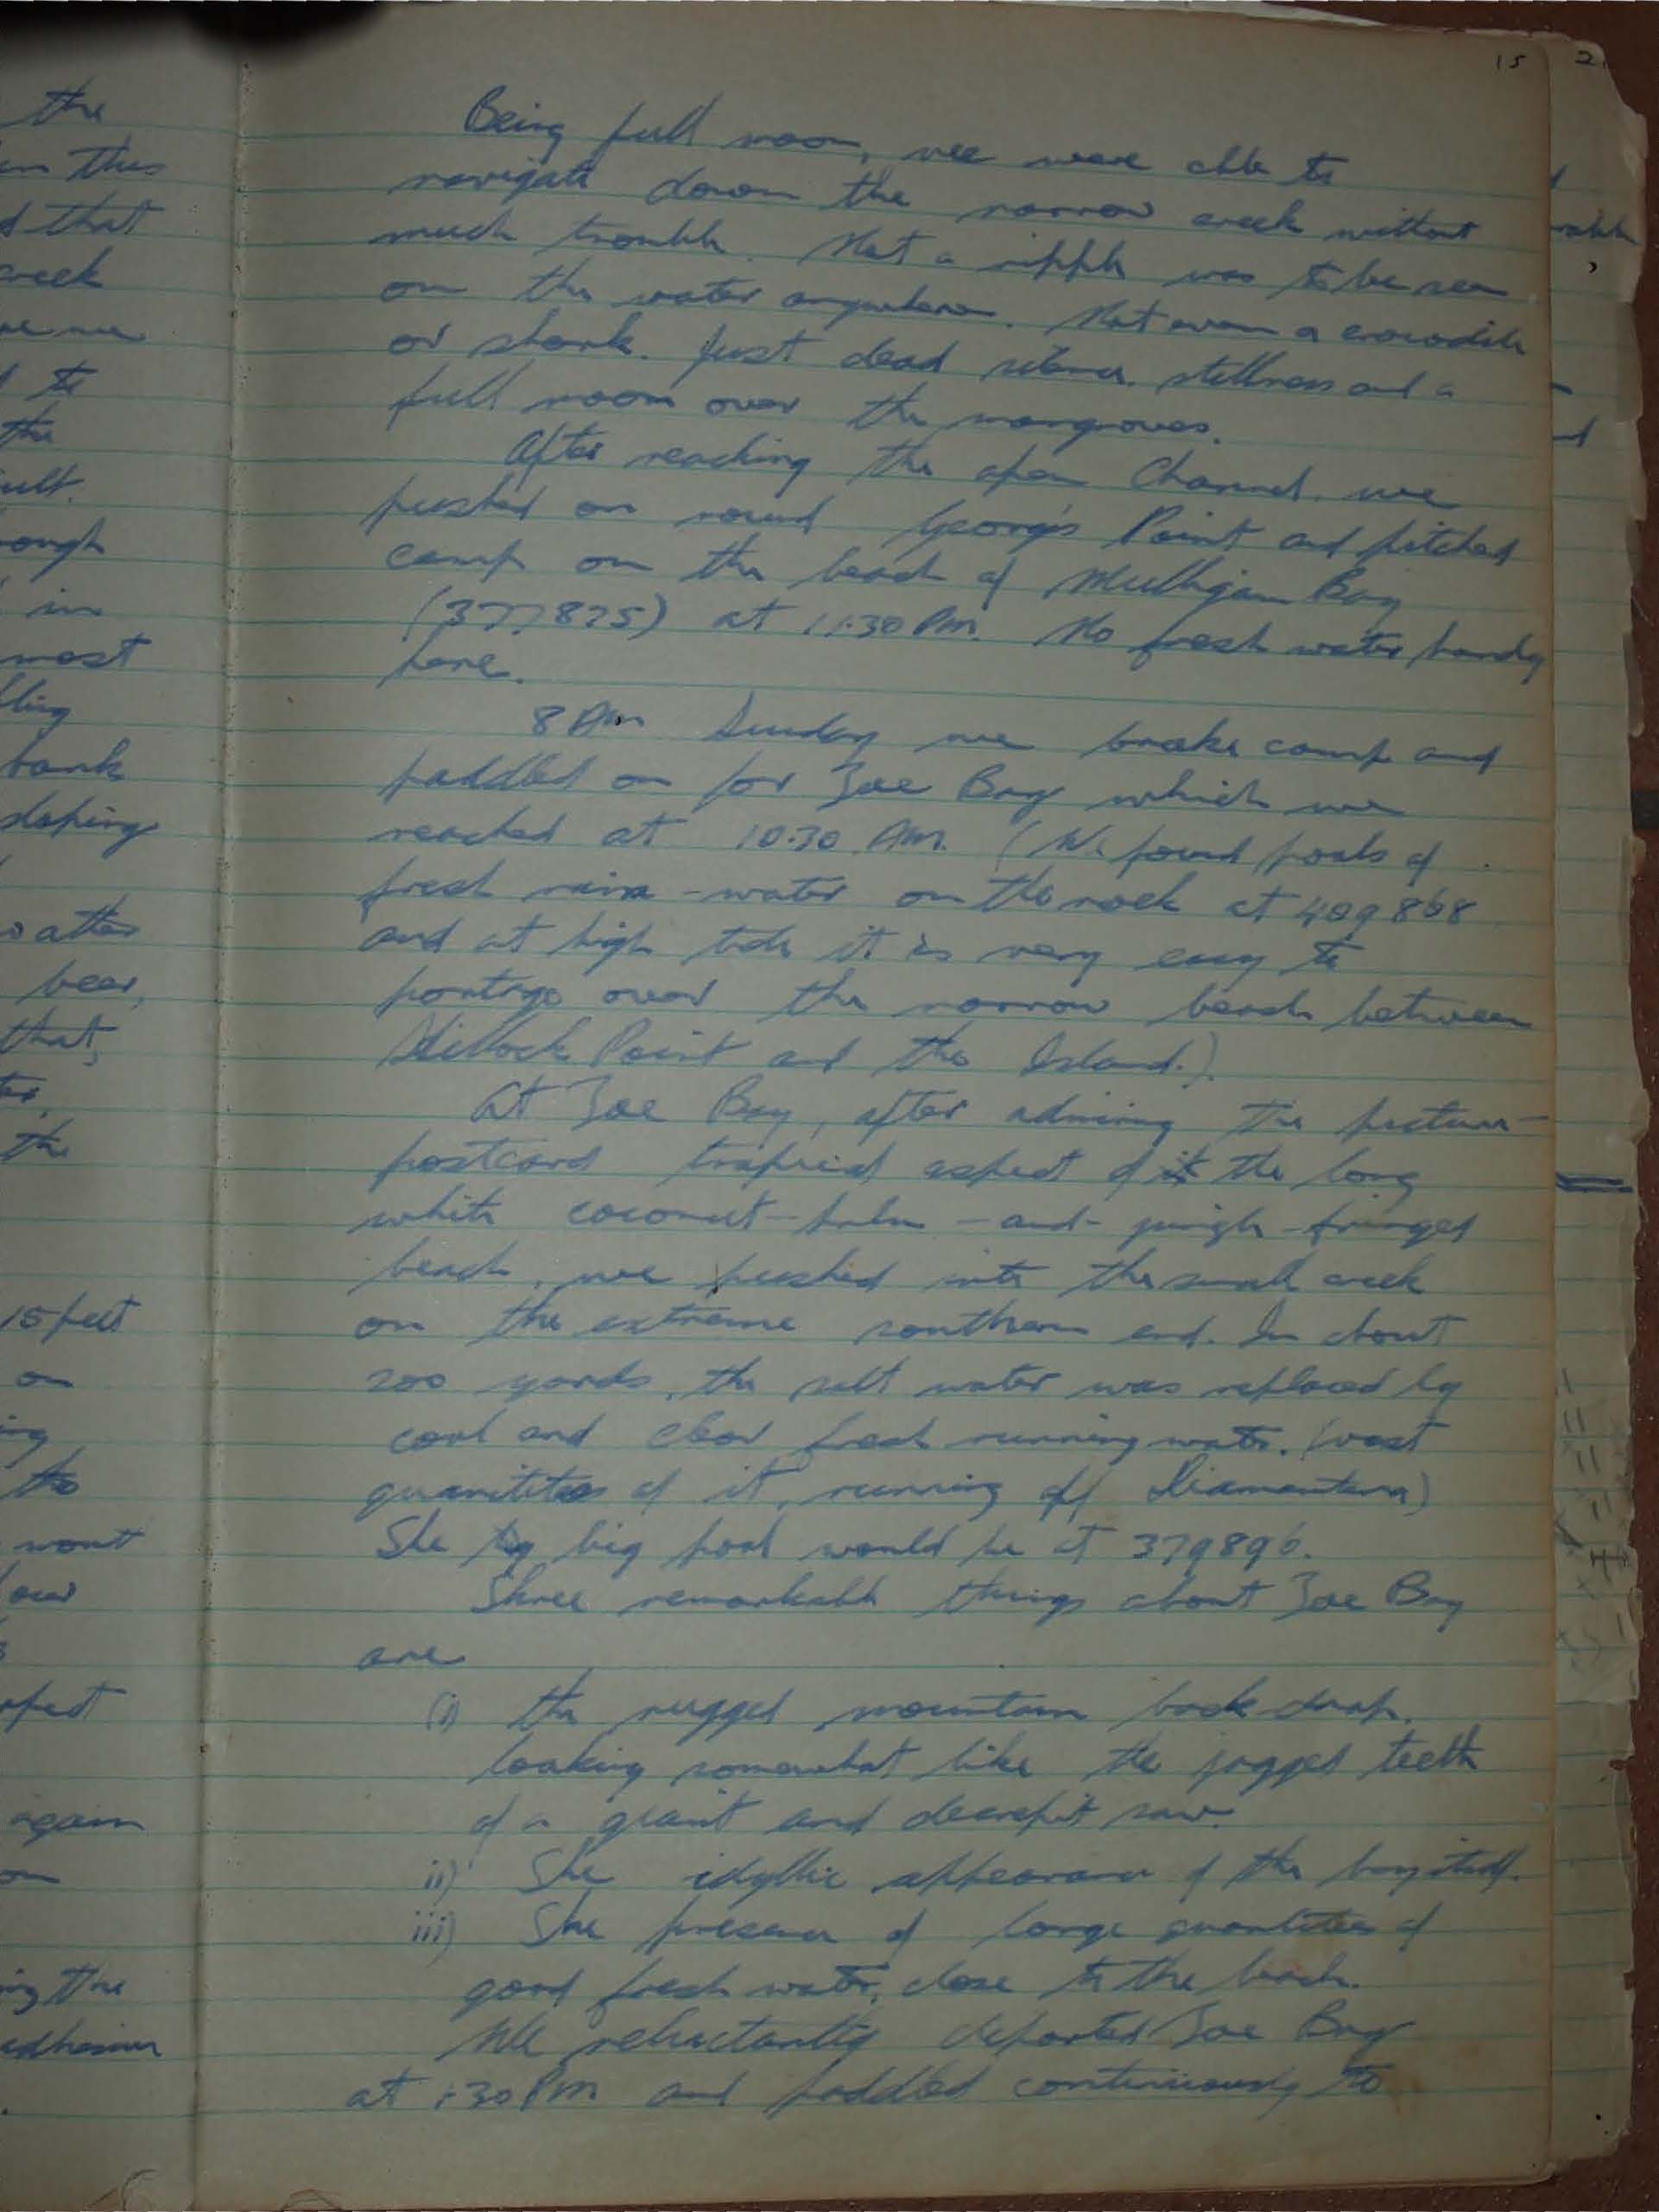 15
Being full moon, we were able to
navigate down the narrow creek without
much trouble. Not a ripple was to be seen
on the water anywhere. Not even a crocodile
or shark. Just dead silence, stillness and a
full moon over the mangroves.
After reaching the open Channel, we
pushed on round George's Point and pitched
camp on the beach of Mulligan Bay
(377825) at 11.30 PM. No fresh water handy
here.
8 AM Sunday we broke camp and
paddled on for Zoe Bay which we
reached at 10.30 AM. (We found pools of
fresh rain-water on the rock at 409868
and at high tide it is very easy to
portage over the narrow beach between
Hillock Point and the Island.)
At Zoe Bay, after admiring the picture-
postcard tropical aspect of the long
white coconut-palm-and-jungle-fringed
beach, we pushed into the small creek
on the extreme southern end. In about
200 yards, the salt water was replaced by
cool and clear fresh running water. (vast
quantities of it, running off Diamantina)
The big pool would be at 379896.
Three remarkable things about Zoe Bay
are
(i) the rugged mountain back drop,
looking somewhat like the jagged teeth
of a giant and decrepit saw.
ii) The idyllic appearance of the bay itself.
iii) The presence of large quantities of
good fresh water, close to the beach.
We reluctantly departed Zoe Bay
at 1.30 PM and paddled continuously to